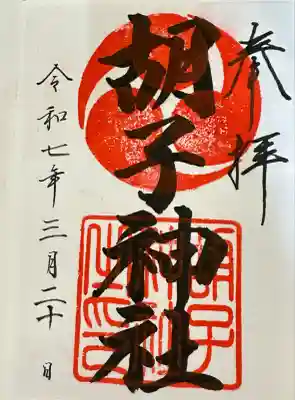 奉拝
胡子神社
胡子神社之印
令和七年三月二十日